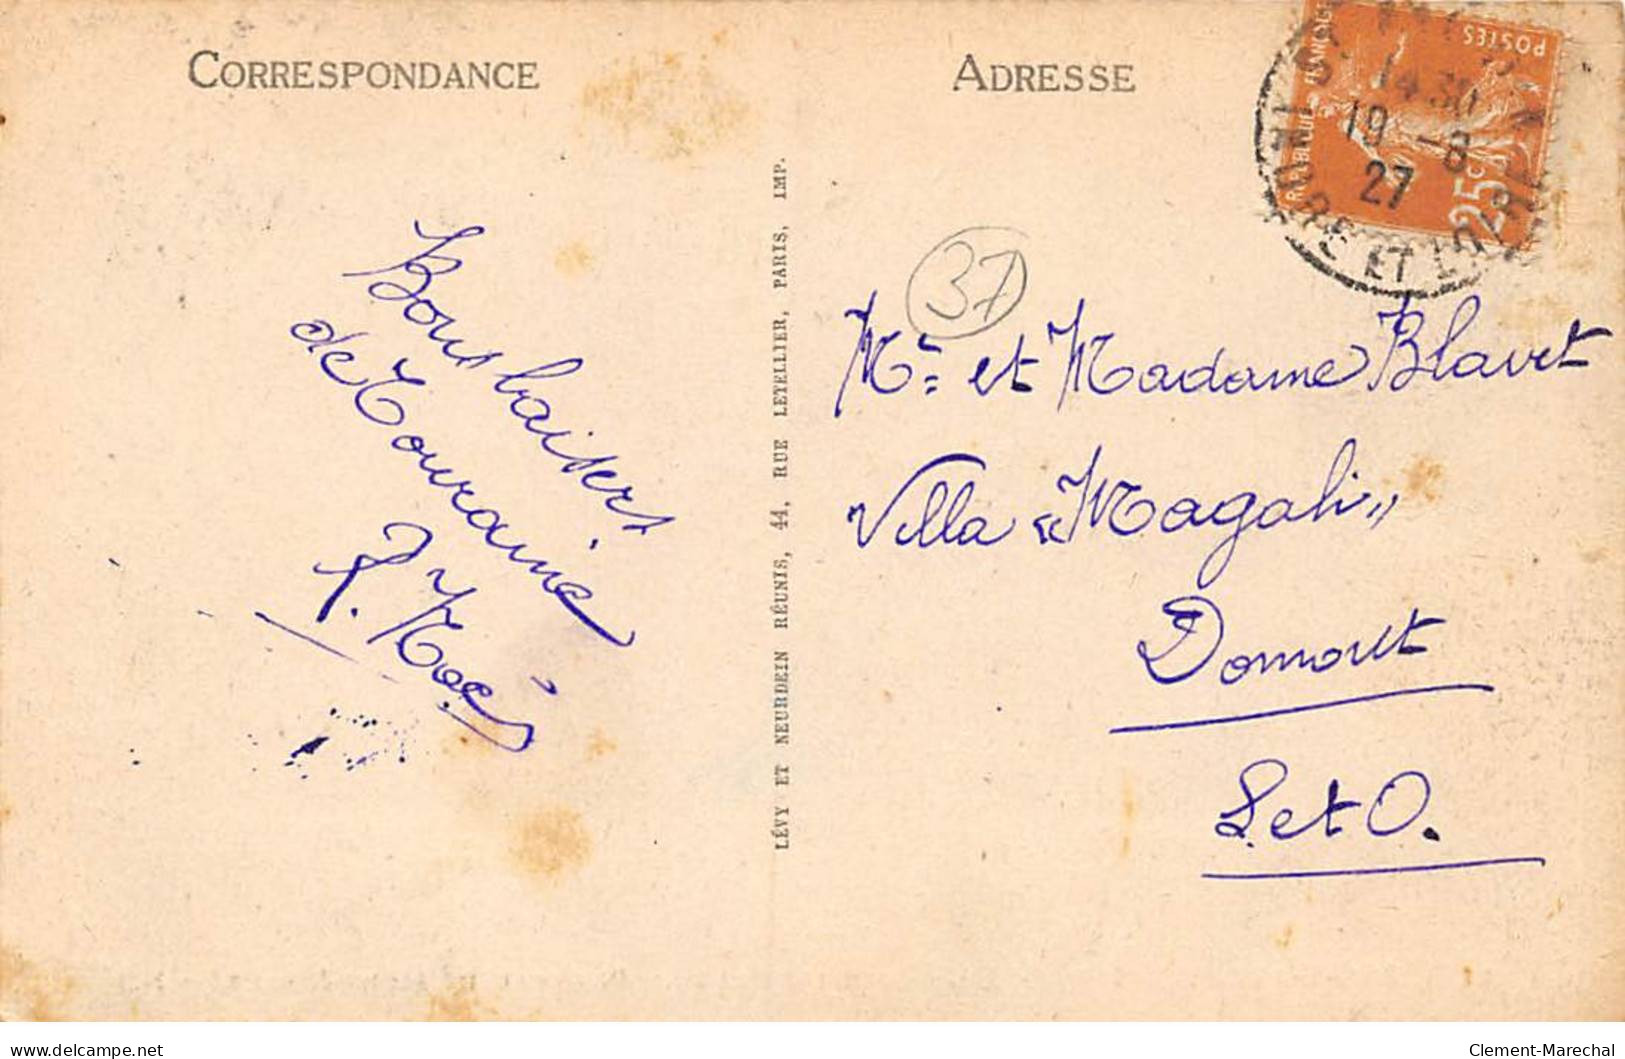 CORRESPONDANCE
ADRESSE
RÉPUBLIQUE FRANÇAISE
POSTES
25c
14 30
19 -8
27
INDRE ET LOIRE
37
Bons baisers
de Touraine
Mr et Madame Blavet
Villa "Magali"
Domont
S. et O.
LÉVY ET NEURDEIN RÉUNIS, 44, RUE LETELLIER, PARIS, IMP.
www.delcampe.net
Clement-Marechal